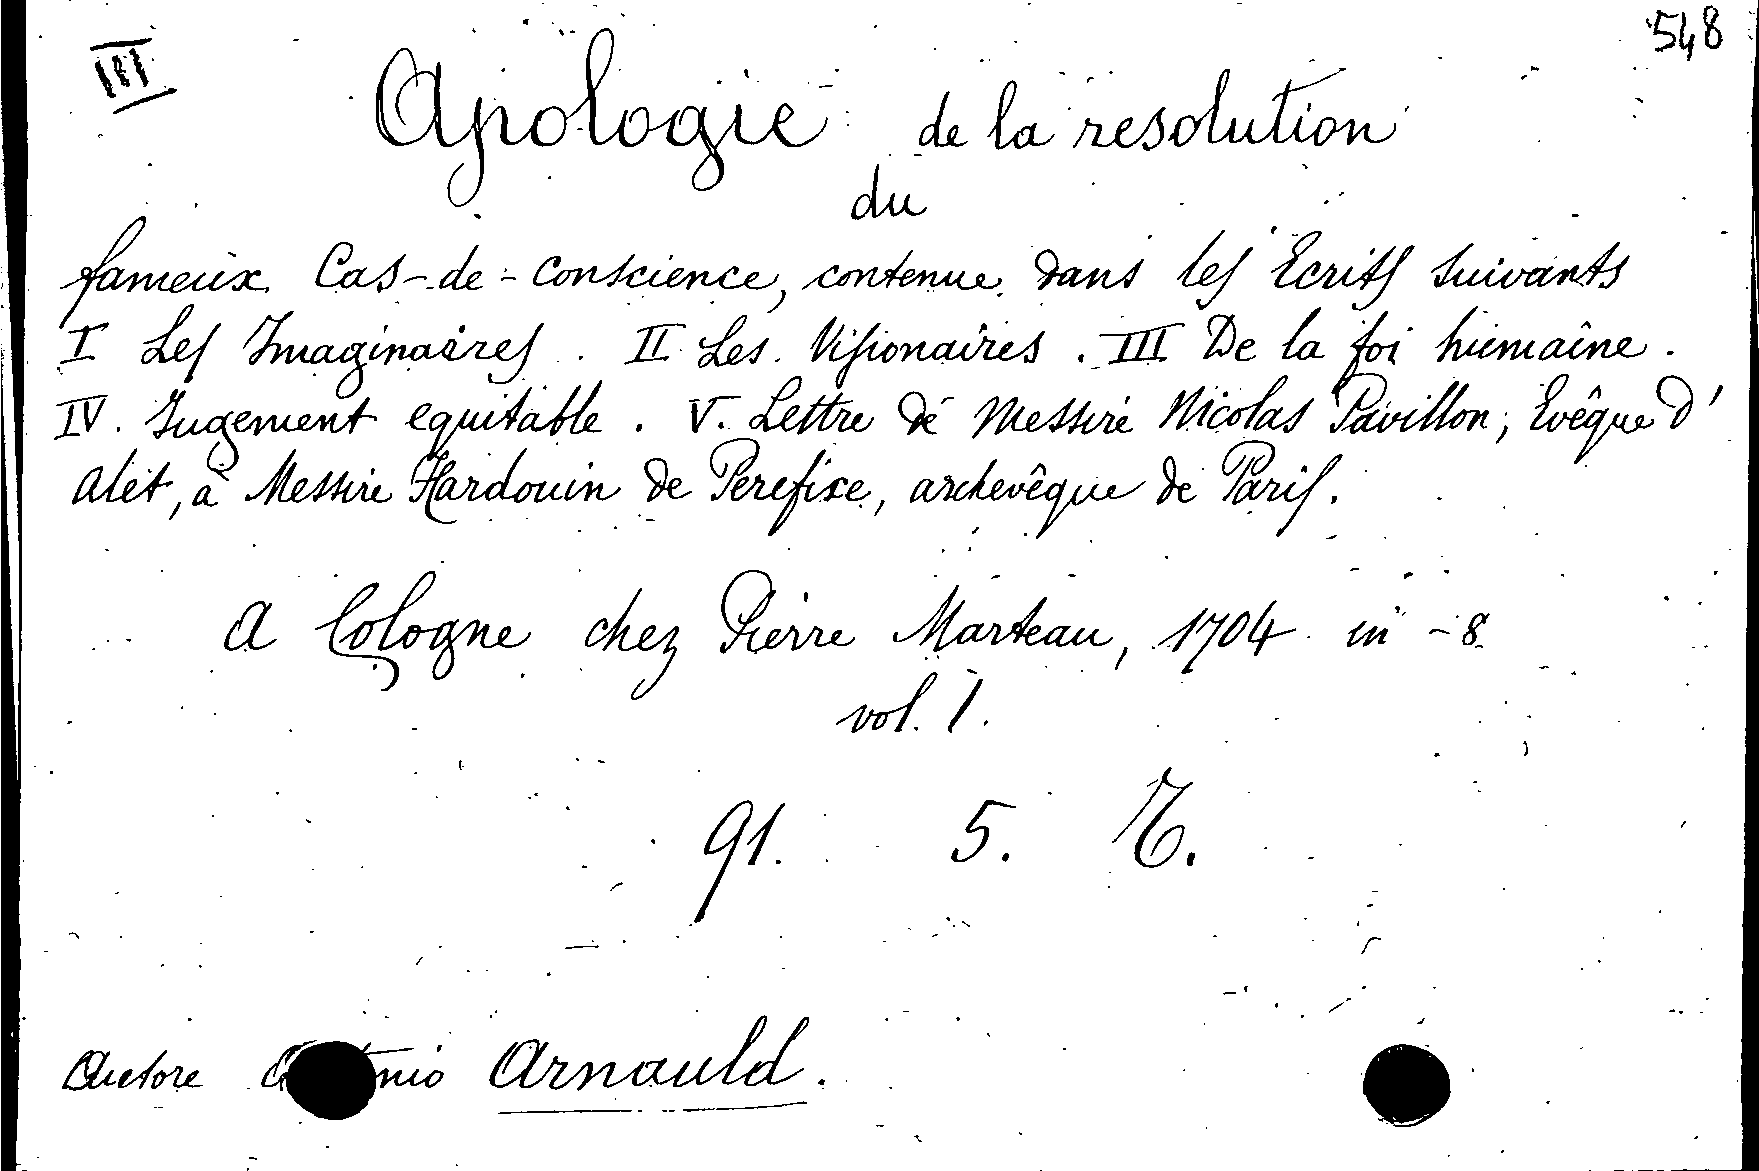 III
548
Apologie de la resolution
du
fameux Cas-de-Conscience, contenue dans les Ecrits suivants
I Les Imaginaires. II Les Visionaires. III De la foi humaîne.
IV. Jugement equitable. V. Lettre de Messire Nicolas Pavillon, Evêque d'
Alet, à Messire Hardouin de Perefixe, archevêque de Paris.
A Cologne chez Pierre Marteau, 1704 in-8
vol. 1.
91. 5.
Auctore Arnauld.